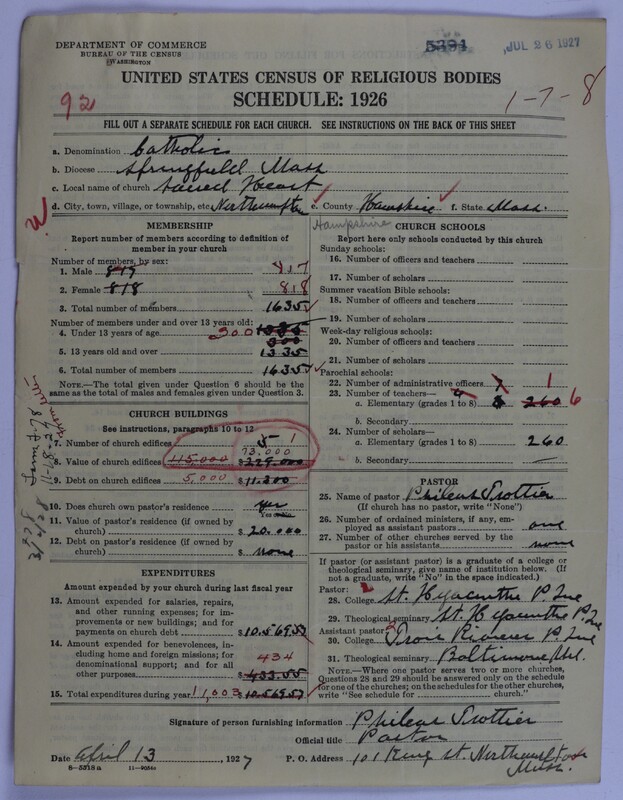 DEPARTMENT OF COMMERCE
BUREAU OF THE CENSUS
WASHINGTON
5394
JUL 26 1927
UNITED STATES CENSUS OF RELIGIOUS BODIES
SCHEDULE: 1926
92
1-7-8
FILL OUT A SEPARATE SCHEDULE FOR EACH CHURCH. SEE INSTRUCTIONS ON THE BACK OF THIS SHEET
a. Denomination Catholic
b. Diocese Springfield Mass
c. Local name of church Sacred Heart
d. City, town, village, or township, etc. Northampton e. County Hamshire f. State Mass.
Hampshire
MEMBERSHIP
Report number of members according to definition of member in your church
Number of members, by sex:
1. Male 817
2. Female 818 818
3. Total number of members 1635
Number of members under and over 13 years old:
4. Under 13 years of age 300
300
5. 13 years old and over 1335
6. Total number of members 1635
NOTE.—The total given under Question 6 should be the same as the total of males and females given under Question 3.
CHURCH BUILDINGS
See instructions, paragraphs 10 to 12
7. Number of church edifices 5 1
73,000
8. Value of church edifices 115,000 $229.000
9. Debt on church edifices 5,000 $11.200
10. Does church own pastor's residence? yes
Yes or No
11. Value of pastor's residence (if owned by church) $20.000
12. Debt on pastor's residence (if owned by church) $ none
EXPENDITURES
Amount expended by your church during last fiscal year
13. Amount expended for salaries, repairs, and other running expenses; for improvements or new buildings; and for payments on church debt $10.569.57
14. Amount expended for benevolences, including home and foreign missions; for denominational support; and for all other purposes 434 $433.55
15. Total expenditures during year 11,003 $10.569.57
CHURCH SCHOOLS
Report here only schools conducted by this church
Sunday schools:
16. Number of officers and teachers
17. Number of scholars
Summer vacation Bible schools:
18. Number of officers and teachers
19. Number of scholars
Week-day religious schools:
20. Number of officers and teachers
21. Number of scholars
Parochial schools:
22. Number of administrative officers 1
23. Number of teachers—
a. Elementary (grades 1 to 8) 260 6
b. Secondary
24. Number of scholars—
a. Elementary (grades 1 to 8) 260
b. Secondary —
PASTOR
25. Name of pastor Phileas Trottier
(If church has no pastor, write "None")
26. Number of ordained ministers, if any, employed as assistant pastors one
27. Number of other churches served by the pastor or his assistants none
If pastor (or assistant pastor) is a graduate of a college or theological seminary, give name of institution below. (If not a graduate, write "No" in the space indicated.)
Pastor: 2
28. College St. Hyacinthe P. Que
29. Theological seminary St. Hyacinthe P. Que
Assistant pastor:
30. College Trois Rivieres P. Que
31. Theological seminary Baltimore Md.
NOTE.—Where one pastor serves two or more churches, Questions 28 and 29 should be answered only on the schedule for one of the churches; on the schedules for the other churches, write "See schedule for church."
Signature of person furnishing information Phileas Trottier
Official title Pastor
Date April 13, 1927
P. O. Address 101 King St. Northampton
Mass.
8—5318a 11—9084c